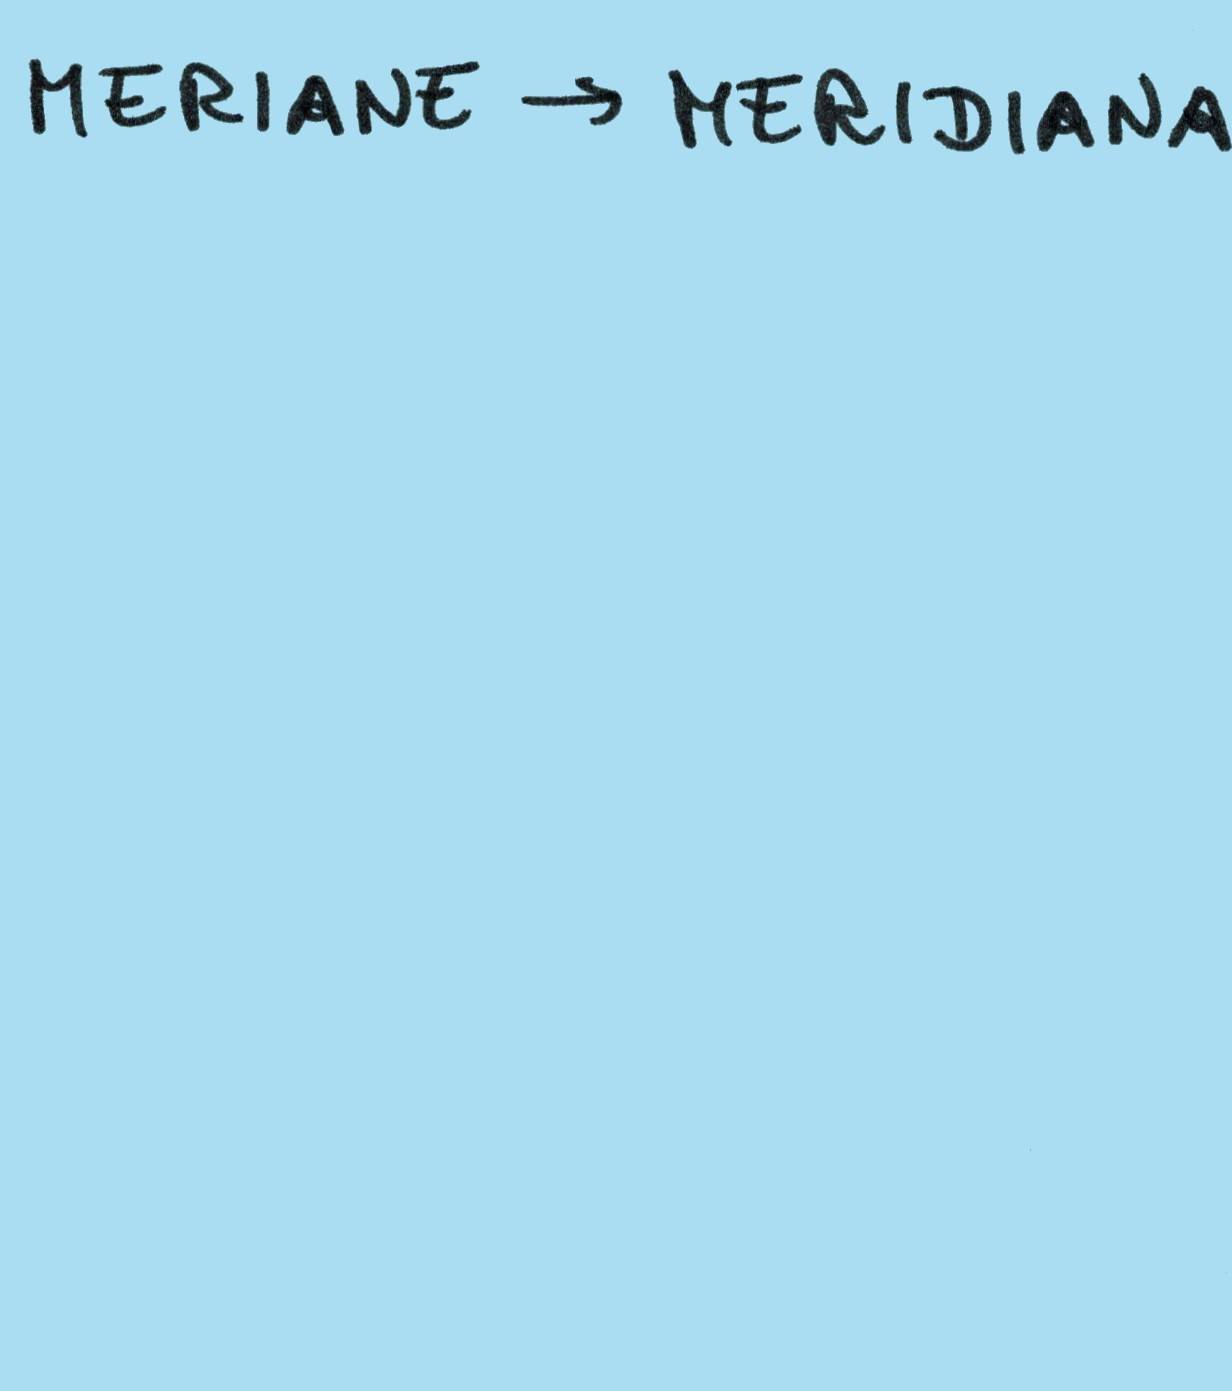 MERIANE → MERIDIANA